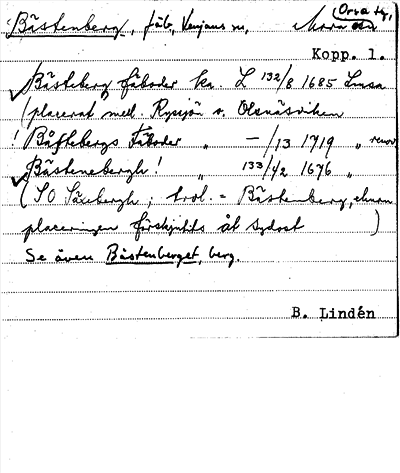 Bästenberg, fäb, Venjans sn, Mora Orsa tg,
Kopp. l.
Bästeberg fäboder ka. L 132/8 1685 Lmsa
(placerat mell. Rysjön o. Olsnäsviken
! Båstebergs Fäboder " —/13 1719 " renov
Bästenebergh! " 133/42 1676 "
(SO Säxebergh; trol. = Bästenberg, ehuru
placeringen förskjutits åt sydost )
Se även Bästenberget, berg.
B. Lindén